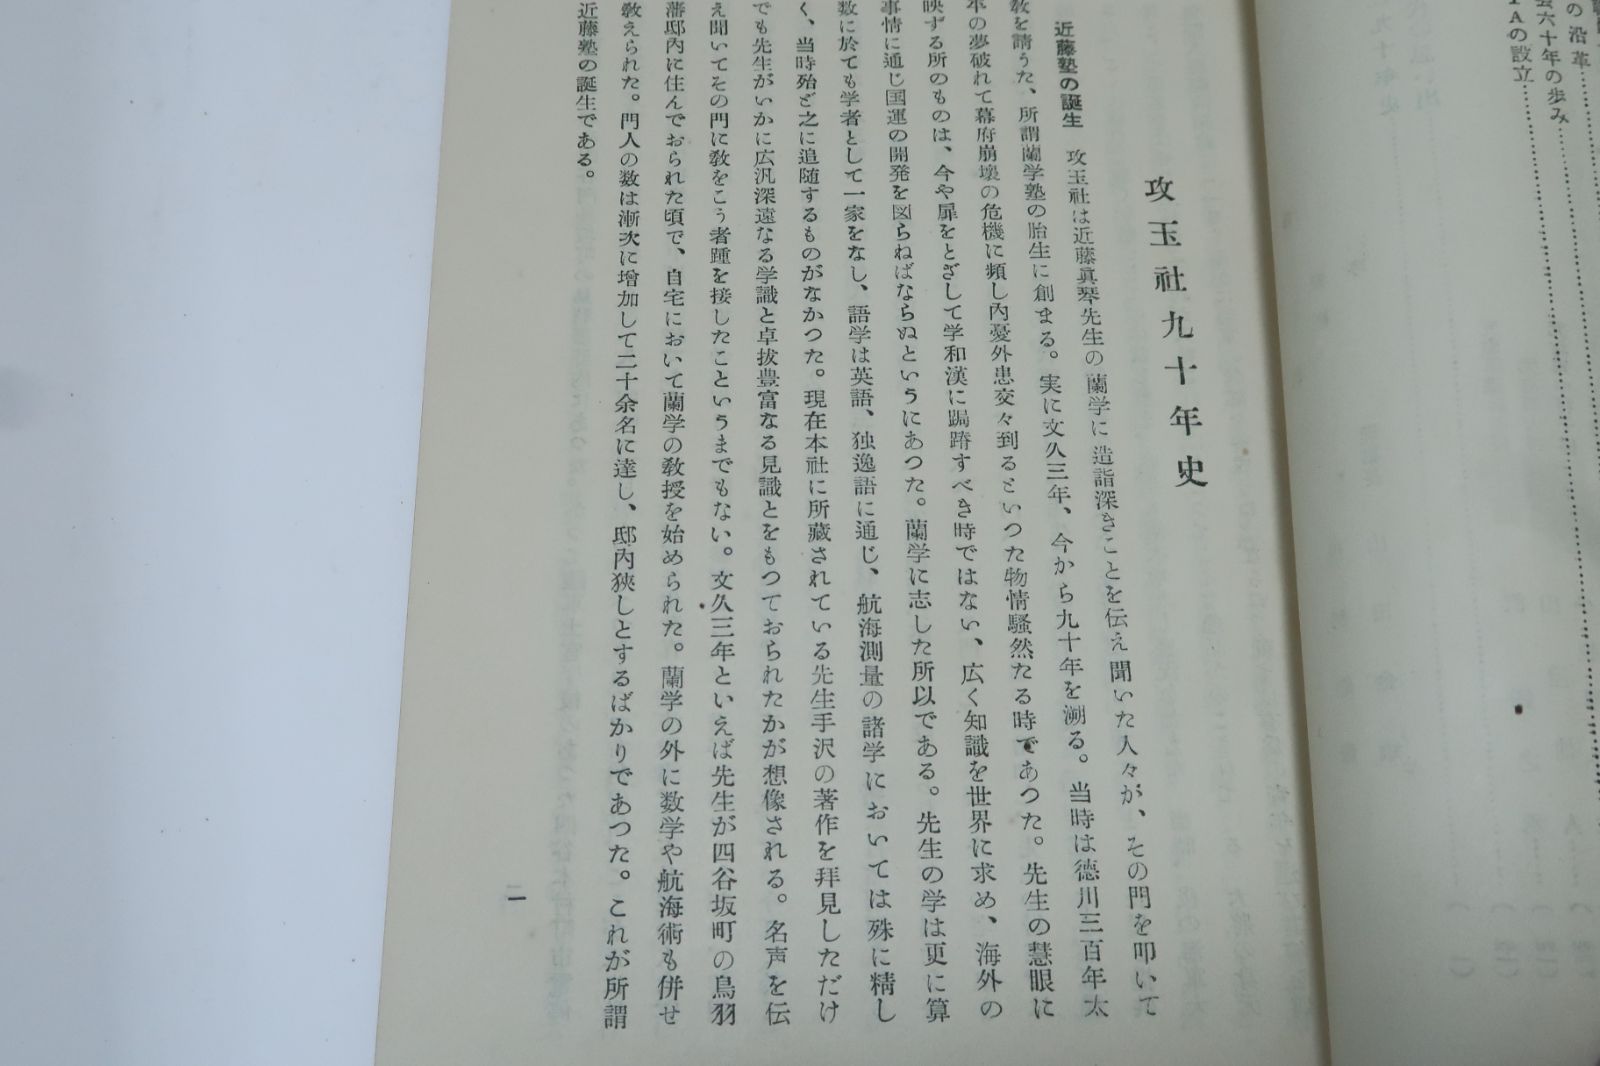 の沿革
会六十年の歩み
TAの設立
攻玉社九十年史
近藤塾の誕生　攻玉社は近藤眞琴先生の蘭学に造詣深きことを伝え聞いた人々が、その門を叩いて
教を請うた、所謂蘭学塾の胎生に創まる。実に文久三年、今から九十年を溯る。当時は徳川三百年太
平の夢破れて幕府崩壊の危機に頻し内憂外患交々到るといつた物情騒然たる時であつた。先生の慧眼に
映ずる所のものは、今や扉をとざして学和漢に跼蹐すべき時ではない、広く知識を世界に求め、海外の
事情に通じ国運の開発を図らねばならぬというにあつた。蘭学に志した所以である。先生の学は更に算
数に於ても学者として一家をなし、語学は英語、独逸語に通じ、航海測量の諸学においては殊に精し
く、当時殆ど之に追随するものがなかつた。現在本社に所藏されている先生手沢の著作を拝見しただけ
でも先生がいかに広汎深遠なる学識と卓抜豊富なる見識とをもつておられたかが想像される。名声を伝
え聞いてその門に教をこう者踵を接したこというまでもない。文久三年といえば先生が四谷坂町の鳥羽
藩邸内に住んでおられた頃で、自宅において蘭学の教授を始められた。蘭学の外に数学や航海術も併せ
教えられた。門人の数は漸次に増加して二十余名に達し、邸内狹しとするばかりであつた。これが所謂
近藤塾の誕生である。